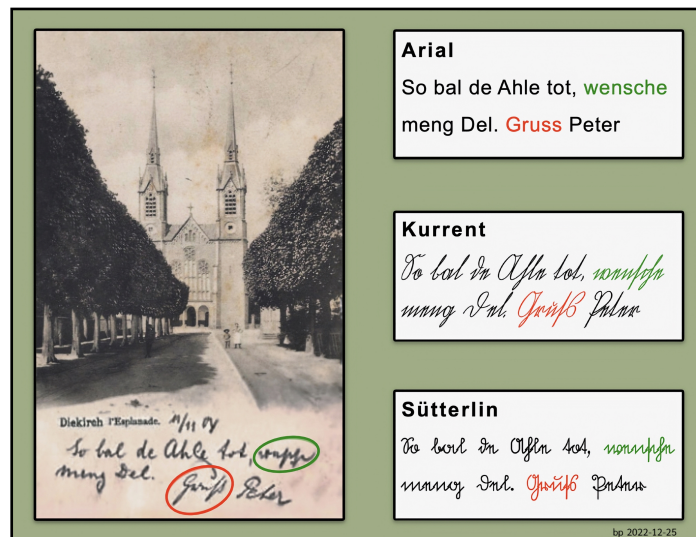 Diekirch l'Esplanade. 11/11 04
So bal de Ahle tot, wensche
meng Del.
Gruss Peter
Arial
So bal de Ahle tot, wensche
meng Del. Gruss Peter
Kurrent
So bal de Ahle tot, wensche
meng Del. Gruß Peter
Sütterlin
So bal de Ahle tot, wensche
meng Del. Gruß Peter
bp 2022-12-25